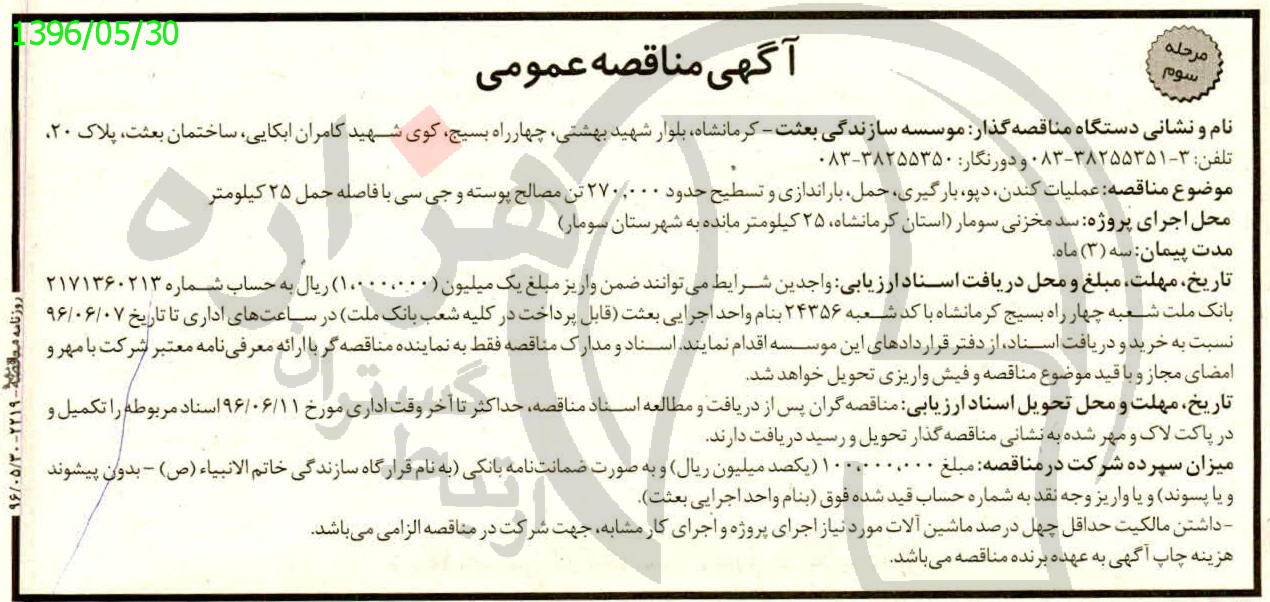 1396/05/30
مرحله
سوم
آگهی مناقصه عمومی
نام و نشانی دستگاه مناقصه‌گذار: موسسه سازندگی بعثت - کرمانشاه، بلوار شهید بهشتی، چهارراه بسیج، کوی شهید کامران ابکایی، ساختمان بعثت، پلاک ۲۰،
تلفن: ۳-۳۸۲۵۵۳۵۱-۰۸۳ و دورنگار: ۳۸۲۵۵۳۵۰-۰۸۳
موضوع مناقصه: عملیات کندن، دپو، بارگیری، حمل، باراندازی و تسطیح حدود ۲۷۰,۰۰۰ تن مصالح پوسته و جی سی با فاصله حمل ۲۵ کیلومتر
محل اجرای پروژه: سد مخزنی سومار (استان کرمانشاه، ۲۵ کیلومتر مانده به شهرستان سومار)
مدت پیمان: سه (۳) ماه.
تاریخ، مهلت، مبلغ و محل دریافت اسناد ارزیابی: واجدین شرایط می‌توانند ضمن واریز مبلغ یک میلیون (۱,۰۰۰,۰۰۰) ریال به حساب شماره ۲۱۷۱۳۶۰۲۱۳
بانک ملت شعبه چهار راه بسیج کرمانشاه با کد شعبه ۲۴۳۵۶ بنام واحد اجرایی بعثت (قابل پرداخت در کلیه شعب بانک ملت) در ساعت‌های اداری تا تاریخ ۹۶/۰۶/۰۷
نسبت به خرید و دریافت اسناد، از دفتر قراردادهای این موسسه اقدام نمایند. اسناد و مدارک مناقصه فقط به نماینده مناقصه‌گر با ارائه معرفی‌نامه معتبر شرکت با مهر و
امضای مجاز و با قید موضوع مناقصه و فیش واریزی تحویل خواهد شد.
تاریخ، مهلت و محل تحویل اسناد ارزیابی: مناقصه‌گران پس از دریافت و مطالعه اسناد مناقصه، حداکثر تا آخر وقت اداری مورخ ۹۶/۰۶/۱۱ اسناد مربوطه را تکمیل و
در پاکت لاک و مهر شده به نشانی مناقصه‌گذار تحویل و رسید دریافت دارند.
میزان سپرده شرکت در مناقصه: مبلغ ۱۰۰,۰۰۰,۰۰۰ (یکصد میلیون ریال) و به صورت ضمانت‌نامه بانکی (به نام قرارگاه سازندگی خاتم الانبیاء (ص) - بدون پیشوند
و یا پسوند) و یا واریز وجه نقد به شماره حساب قید شده فوق (بنام واحد اجرایی بعثت).
-داشتن مالکیت حداقل چهل درصد ماشین آلات مورد نیاز اجرای پروژه و اجرای کار مشابه، جهت شرکت در مناقصه الزامی می‌باشد.
هزینه چاپ آگهی به عهده برنده مناقصه می‌باشد.
روزنامه مناقصه - ۲۲۱۹ - ۹۶/۰۵/۳۰
هزاره
گستران
ارتباط